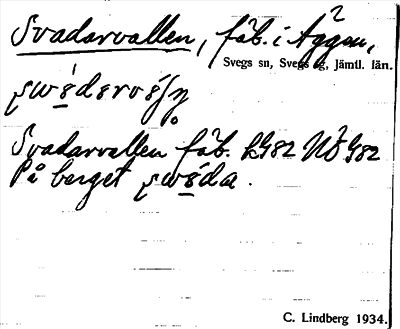 Svadarvallen, fäb. i Äggen,
Svegs sn, Svegs tg, Jämtl. län.
Svadarvallen fäb. LG82 NÖ G82
På berget
C. Lindberg 1934.